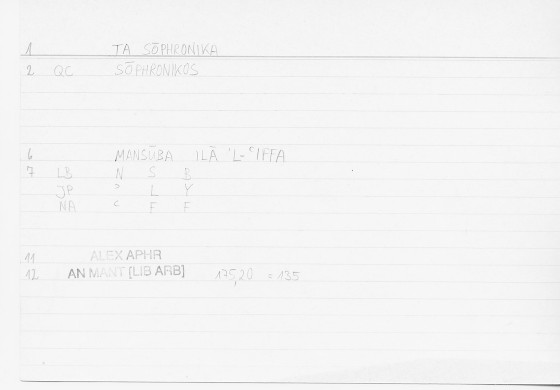 1 TA SŌPHRONIKA
2 QC SŌPHRONIKOS
6 MANSŪBA ILĀ 'L-ʿIFFA
7 LB N S B
JP ʾ L Y
NA ʿ F F
11 ALEX APHR
12 AN MANT [LIB ARB] 175,20 = 135